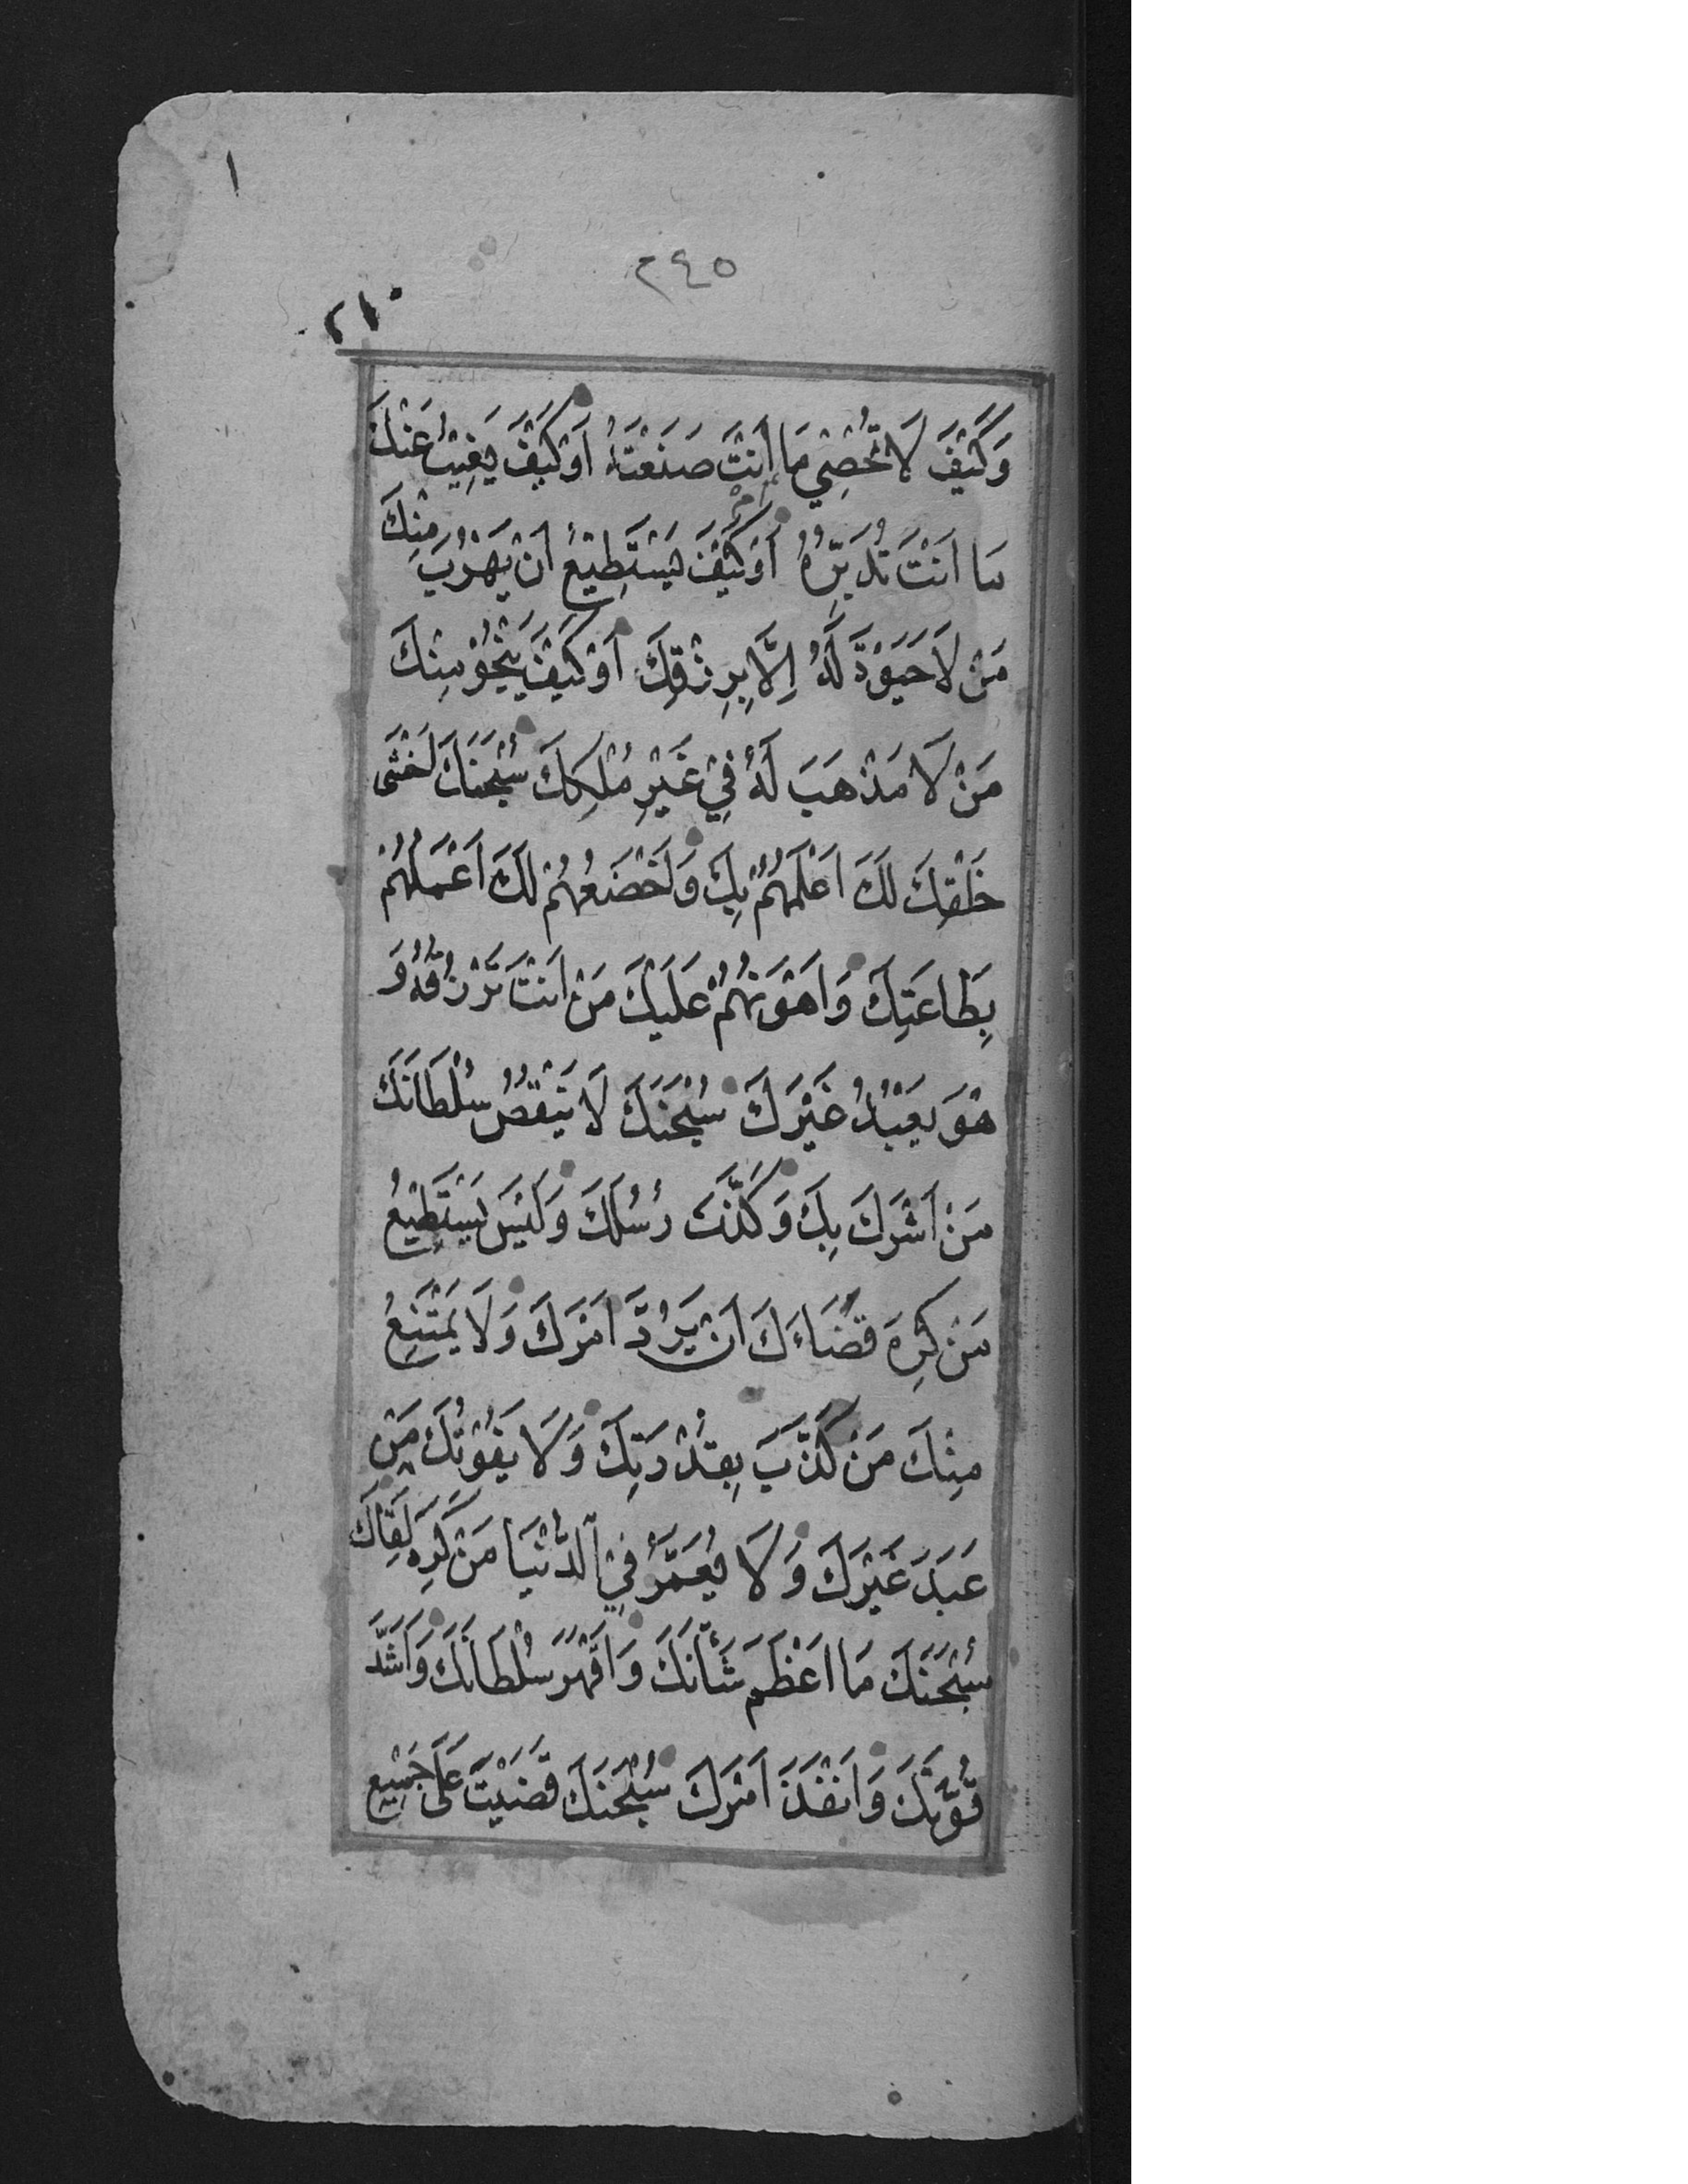 ١
٢٤٥
٢١٠
وَكَيْفَ لَا تُحْصِي مَا اَنْتَ صَنَعْتَهُ اَوْ كَيْفَ يَغِيبُ عَنْكَ
مَا اَنْتَ تُدَبِّرُهُ اَوْ كَيْفَ يَسْتَطِيْعُ اَنْ يَهْرُبَ مِنْكَ
مَنْ لَا حَيٰوةَ لَهُ اِلَّا بِرِزْقِكَ اَوْ كَيْفَ يَنْجُوْ مِنْكَ
مَنْ لَا مَذْهَبَ لَهُ فِيْ غَيْرِ مُلْكِكَ سُبْحٰنَكَ اَخْشٰى
خَلْقِكَ لَكَ اَعْلَمُهُمْ بِكَ وَاَخْضَعُهُمْ لَكَ اَعْمَلُهُمْ
بِطَاعَتِكَ وَاَهْوَنُهُمْ عَلَيْكَ مَنْ اَنْتَ تَرْزُقُهُ وَ
هُوَ يَعْبُدُ غَيْرَكَ سُبْحٰنَكَ لَا يَنْقُصُ سُلْطَانَكَ
مَنْ اَشْرَكَ بِكَ وَكَذَّبَ رُسُلَكَ وَلَيْسَ يَسْتَطِيْعُ
مَنْ كَرِهَ قَضَاءَكَ اَنْ يَرُدَّ اَمْرَكَ وَلَا يَمْتَنِعُ
مِنْكَ مَنْ كَذَّبَ بِقُدْرَتِكَ وَلَا يَفُوْتُكَ مَنْ
عَبَدَ غَيْرَكَ وَلَا يُعَمَّرُ فِي الدُّنْيَا مَنْ كَرِهَ لِقَاءَكَ
سُبْحٰنَكَ مَا اَعْظَمَ شَأْنَكَ وَاَقْهَرَ سُلْطَانَكَ وَاَشَدَّ
قُوَّتَكَ وَاَنْفَذَ اَمْرَكَ سُبْحٰنَكَ قَضَيْتَ عَلٰى جَمِيْعِ